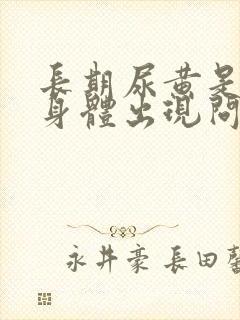 長期尿黃是
身體出現問
永井豪 長田馨